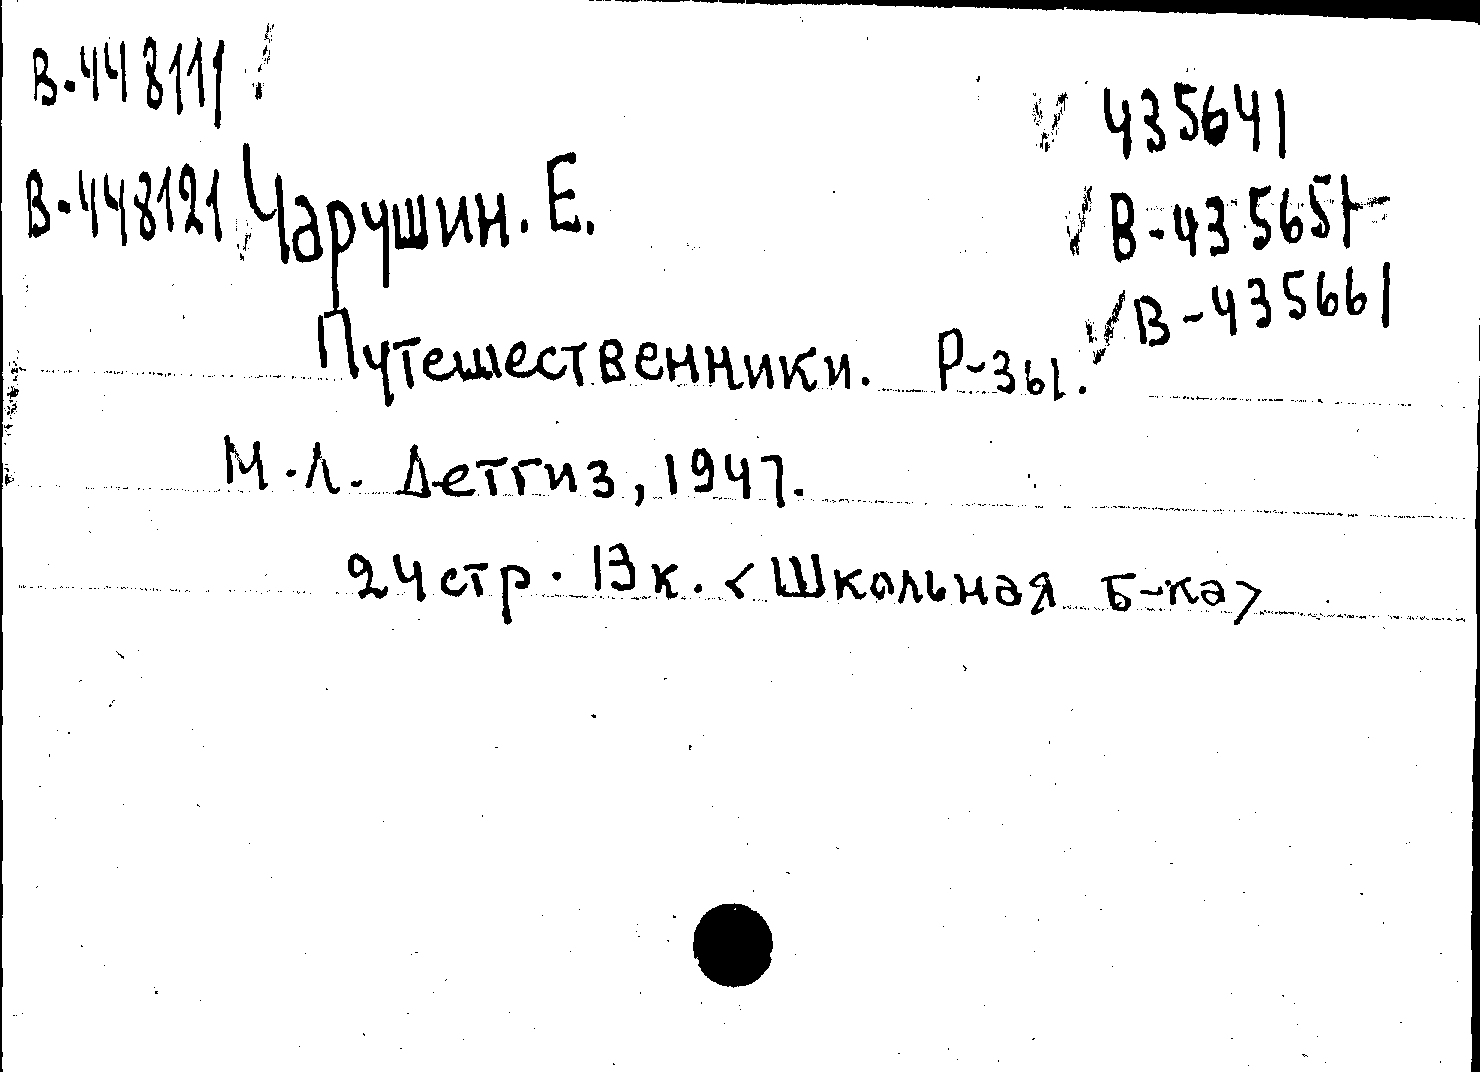 В-448111
435641
В-448121 Чарушин. Е.
В-435651
В-435661
Путешественники. Р-зы.
М.-Л. Детгиз, 1947.
24 стр. 13 к. <Школьная б-ка>